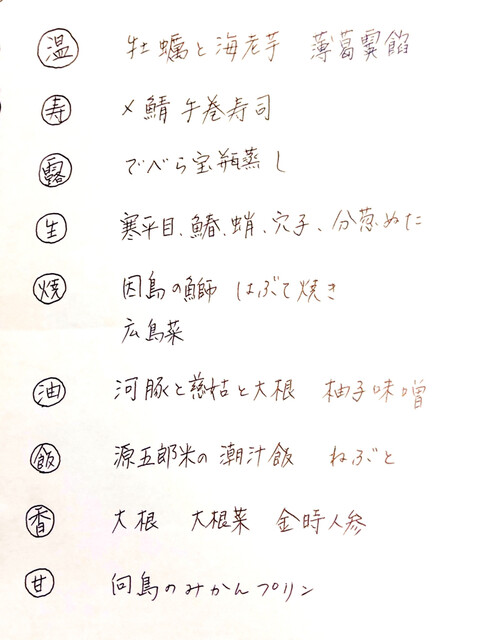 温 牡蠣と海老芋 薄葛霙餡
寿 〆鯖手巻寿司
露 でべら宝瓶蒸し
生 寒平目、鰆、蛸、穴子、分葱ぬた
焼 因島の鰤 はぶて焼き
広島菜
油 河豚と慈姑と大根 柚子味噌
飯 源五郎米の潮汁飯 ねぶと
香 大根 大根菜 金時人参
甘 向島のみかんプリン